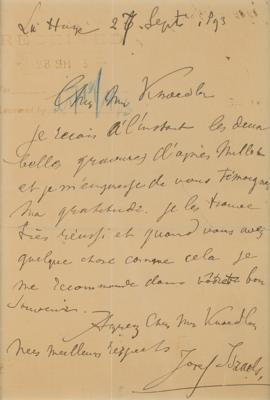 La Haye 27 Sept. 1893
Cher Mr Knoedler
je reçois à l'instant les deux
belles gravures d'après Millet
et je m'empresse de vous témoigner
ma gratitude. je les trouve
très réussi et quand vous avez
quelque chose comme cela je
me recommande dans votre bon
souvenir.
Agréez Cher Mr Knoedler
mes meilleurs respects
Jozef Israels